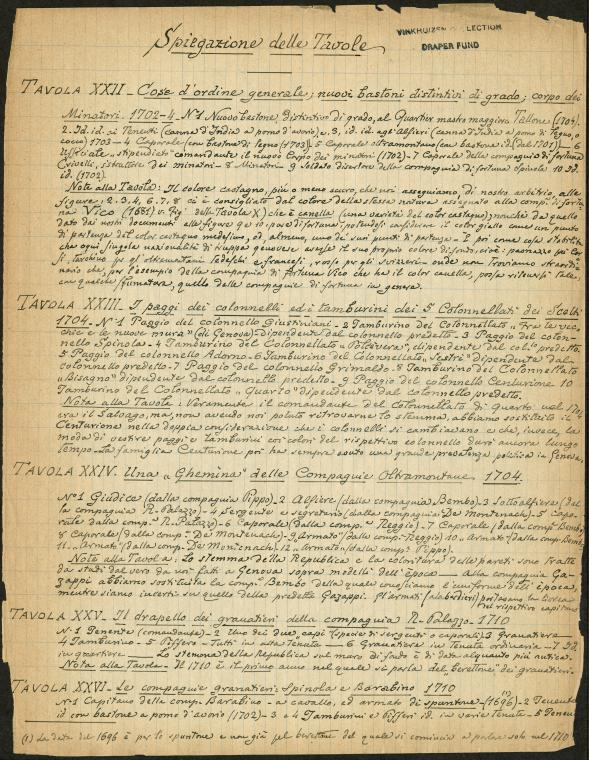 Spiegazione delle Tavole
VINKHUIZEN COLLECTION
DRAPER FUND
TAVOLA XXII – Cose d'ordine generale; nuovi bastoni distintivi di grado; corpo dei
Minatori. 1702-4 – N°1 Nuovo bastone, distintivo di grado, al Quartier mastro maggiore Tallone (1704).
2. Id. id. ai Tenenti (canna d'India a pomo d'avorio) e 3, id. id. agli Alfieri (canna d'India a pomo di legno, o
cocco) 1703 – 4 Caporale (con bastone di legno (1703) 5 Caporale oltramontano (con bastone id. (del 1701)) – 6
Ufficiale "stipendiato" comandante il nuovo Corpo dei minatori (1702) – 7 Caporale della compagnia di fortuna
Crivelli, istruttore dei minatori – 8 Minatori – 9 Soldato disertore della compagnia di fortuna Spinola 10 Id.
id. (1702).
Note alla Tavola: Il colore castagno, più o meno scuro, che noi assegniamo, di nostro arbitrio, alle
figure: 2, 3, 4, 6, 7, 8 ci è consigliato dal colore della stessa natura assegnato alla comp. di fortu-
na Vico (1681) v. fig. dell. Tavola X) che è canella (una varietà del color castagno), nonché da quello
dato dai nostri documenti alle figure 9 e 10; pare di fortuna: potendosi considerare il color giallo come un punto
di partenza del color castagno medesimo, od almeno, uno dei suoi punti di partenza – È poi come cosa stabilita
che ogni singola nazionalità di truppa genovese avesse il suo proprio colore di fondo, cioè: paonazzo pei Cor-
si, turchino pe gl' oltramontani Tedeschi e francesi, rosso per gli Svizzeri – onde non troviamo straordi-
nario che, per l'esempio della compagnia di fortuna Vico che ha il color canella, possa ritenersi tale,
con qualche sfumatura, quello delle compagnie di fortuna in genere.
TAVOLA XXIII – I paggi dei colonnelli ed i tamburini dei 5 Colonnellati dei Scelti
1704 – N°1 Paggio del Colonnello Giustiniani – 2 Tamburino del Colonnellato "Fra le vec-
chie e le nuove mura" (di Genova) – dipendente dal colonnello predetto – 3 Paggio del colon-
nello Spinola – 4 Tamburino del Colonnellato "Polcevera", dipendente dal coll.° predetto.
5 Paggio del colonnello Adorno – 6 Tamburino del Colonnellato "Sestri" dipendente dal
colonnello predetto – 7 Paggio del colonnello Grimaldo – 8 Tamburino del Colonnellato
"Bisagno" dipendente dal colonnello predetto – 9 Paggio del colonnello Centurione 10
Tamburino del Colonnellato "Quarto" dipendente dal colonnello predetto.
Nota alla Tavola: Veramente il comandante del Colonnellato di Quarto nel 1704
era il Salvago, ma, non avendo noi potuto ritrovarne lo stemma, abbiamo sostituito il
Centurione nella doppia considerazione che i colonnelli si cambiavano e che, invece, la
moda di vestire paggi e tamburini coi colori del rispettivo colonnello durò ancora lungo
tempo – La famiglia Centurione poi ha sempre avuto una grande prevalenza politica in Genova.
TAVOLA XXIV. Una "Ghemina" delle Compagnie Oltramontane 1704.
N°1 Giudice (dalla compagnia Pippo) – 2 Alfiere (dalla compagnia Bembo) – 3 Sottoalfiere (dal
la compagnia R. Palazzo) – 4 Sergente e segretario (dalla compagnia: De Montenach) – 5 Capo-
rale dalla comp.ª R. Palazzo) – 6 Caporale (dalla comp.ª Reggio) – 7 Caporale (dalla comp.ª Bembo)
8 Caporale (dalla comp.ª De Montenach) – 9 Armato (dalla comp.ª Reggio) 10 Armato (dalla comp.ª Bembo)
11 – Armato (dalla comp. De Montenach) – 12 – Armato (dalla comp.ª Pippo).
Note alla Tavola: Lo stemma della Repubblica e la coloritura delle pareti sono tratte
da studi dal vero da noi fatti a Genova sopra modelli dell'epoca – alla compagnia Ga-
zappi abbiamo sostituita la comp.ª Bembo della quale conosciamo l'uniforme dell'epoca,
mentre siamo incerti su quello della predetta Gazappi. Gl'armati (alabardieri) portavano la livrea
del rispettivo capitano
TAVOLA XXV – Il drapello dei granatieri della compagnia R. Palazzo – 1710
N.1 Tenente (comandante) – 2 Uno dei due "capi" (specie di sergenti o caporali) 3 Granatiere –
4 Tamburino – 5 Piffero – Tutti in alta tenuta – 6 Granatiere in tenuta ordinaria – 7 Id.
in quartiere – Lo stemma della Repubblica sul muro di fondo è di data alquanto più antica.
Nota alla Tavola – Il 1710 è il primo anno nel quale si parla del "berettone" dei granatieri.
TAVOLA XXVI – Le compagnie granatieri: Spinola e Barabino 1710
N°1 Capitano della comp. Barabino – a cavallo, ed armato di spuntone – (1696) (1) – 2 Tenente
id con bastone a pomo d'avorio (1702) – 3 e 4 Tamburini e Pifferi id. in varie tenute – 5 Tenente
(1) La data del 1696 è per lo spuntone e non già pel berettone del quale si comincia a parlare solo nel 1710